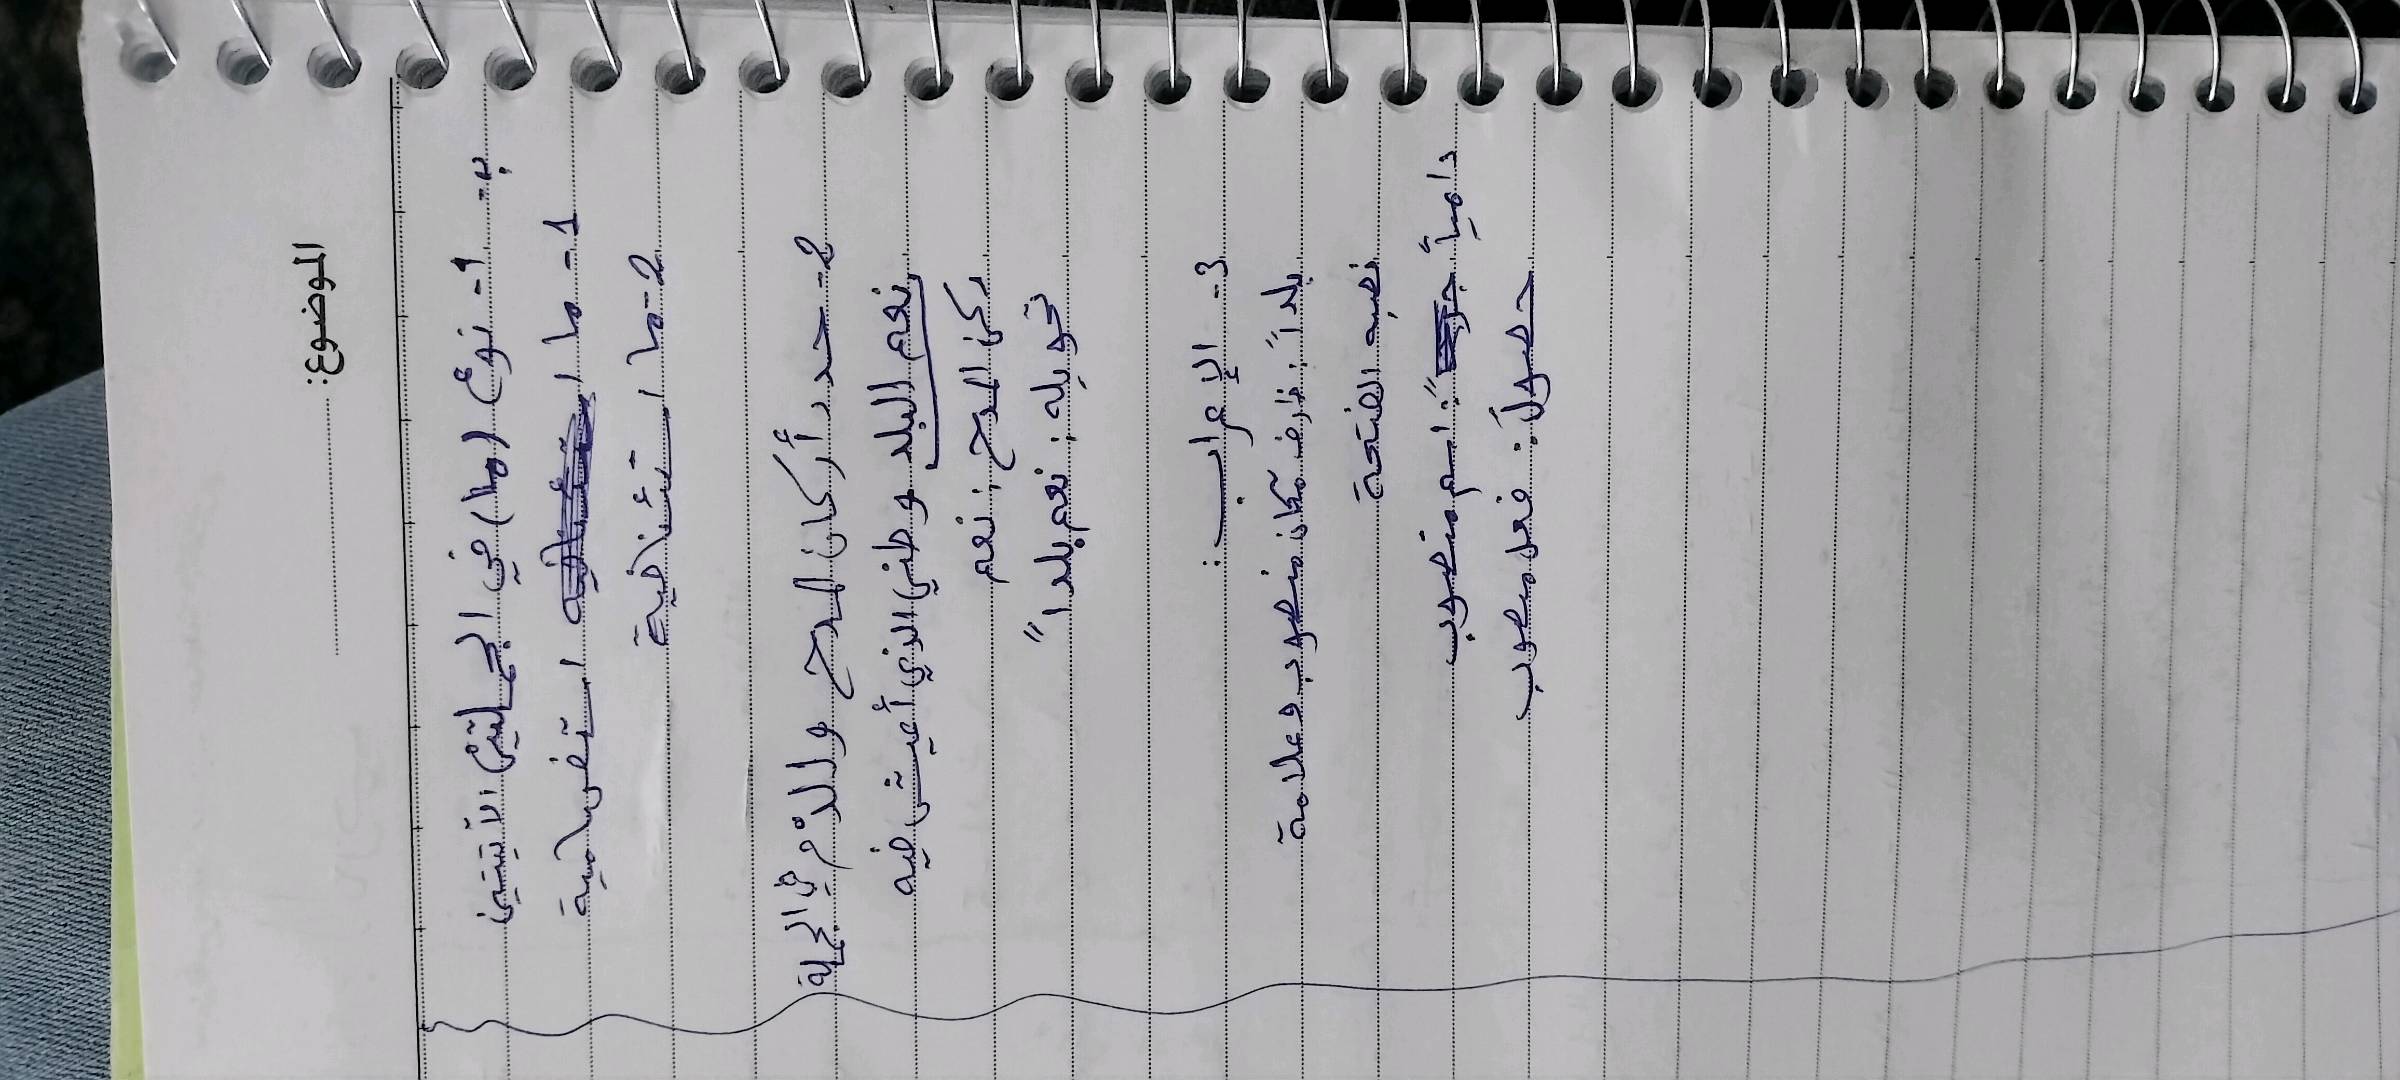 الموضوع:
ب- 1- نوع (ما) في الجملتين الآتيتين
1- ما استفهامية
2- ما استئنافية
2- حدد أركان المدح والذم في الجملة
نعم البلد وطني الذي أعيش فيه
ركن المدح: نعم
تحويله: نعم بلداً
3- الإعراب:
بلداً: ظرف مكان منصوب وعلامة
نصبه الفتحة
دامياً: اسم منصوب
حصولَ: فعل منصوب